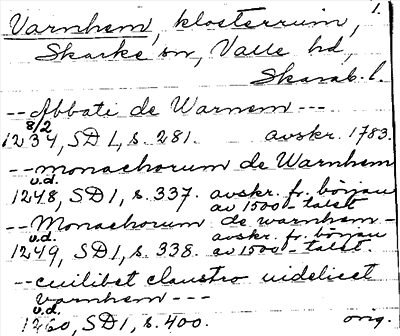 1.
Varnhem, klosterruin,
Skarke sn, Valle hd,
Skarab. l.
-- Abbati de Warnem ---
8/2
1234, SD 1, s. 281. avskr. 1783.
-- monachorum de Warnhem
u.d.
1248, SD1, s. 337. avskr. fr. början
av 1500-talet
-- Monachorum de warnhem -
u.d.
1249, SD1, s. 338. avskr. fr. början
av 1500-talet.
-- cuilibet claustro uidelicet
varnhem ---
u.d.
1260, SD1, s. 400. orig.